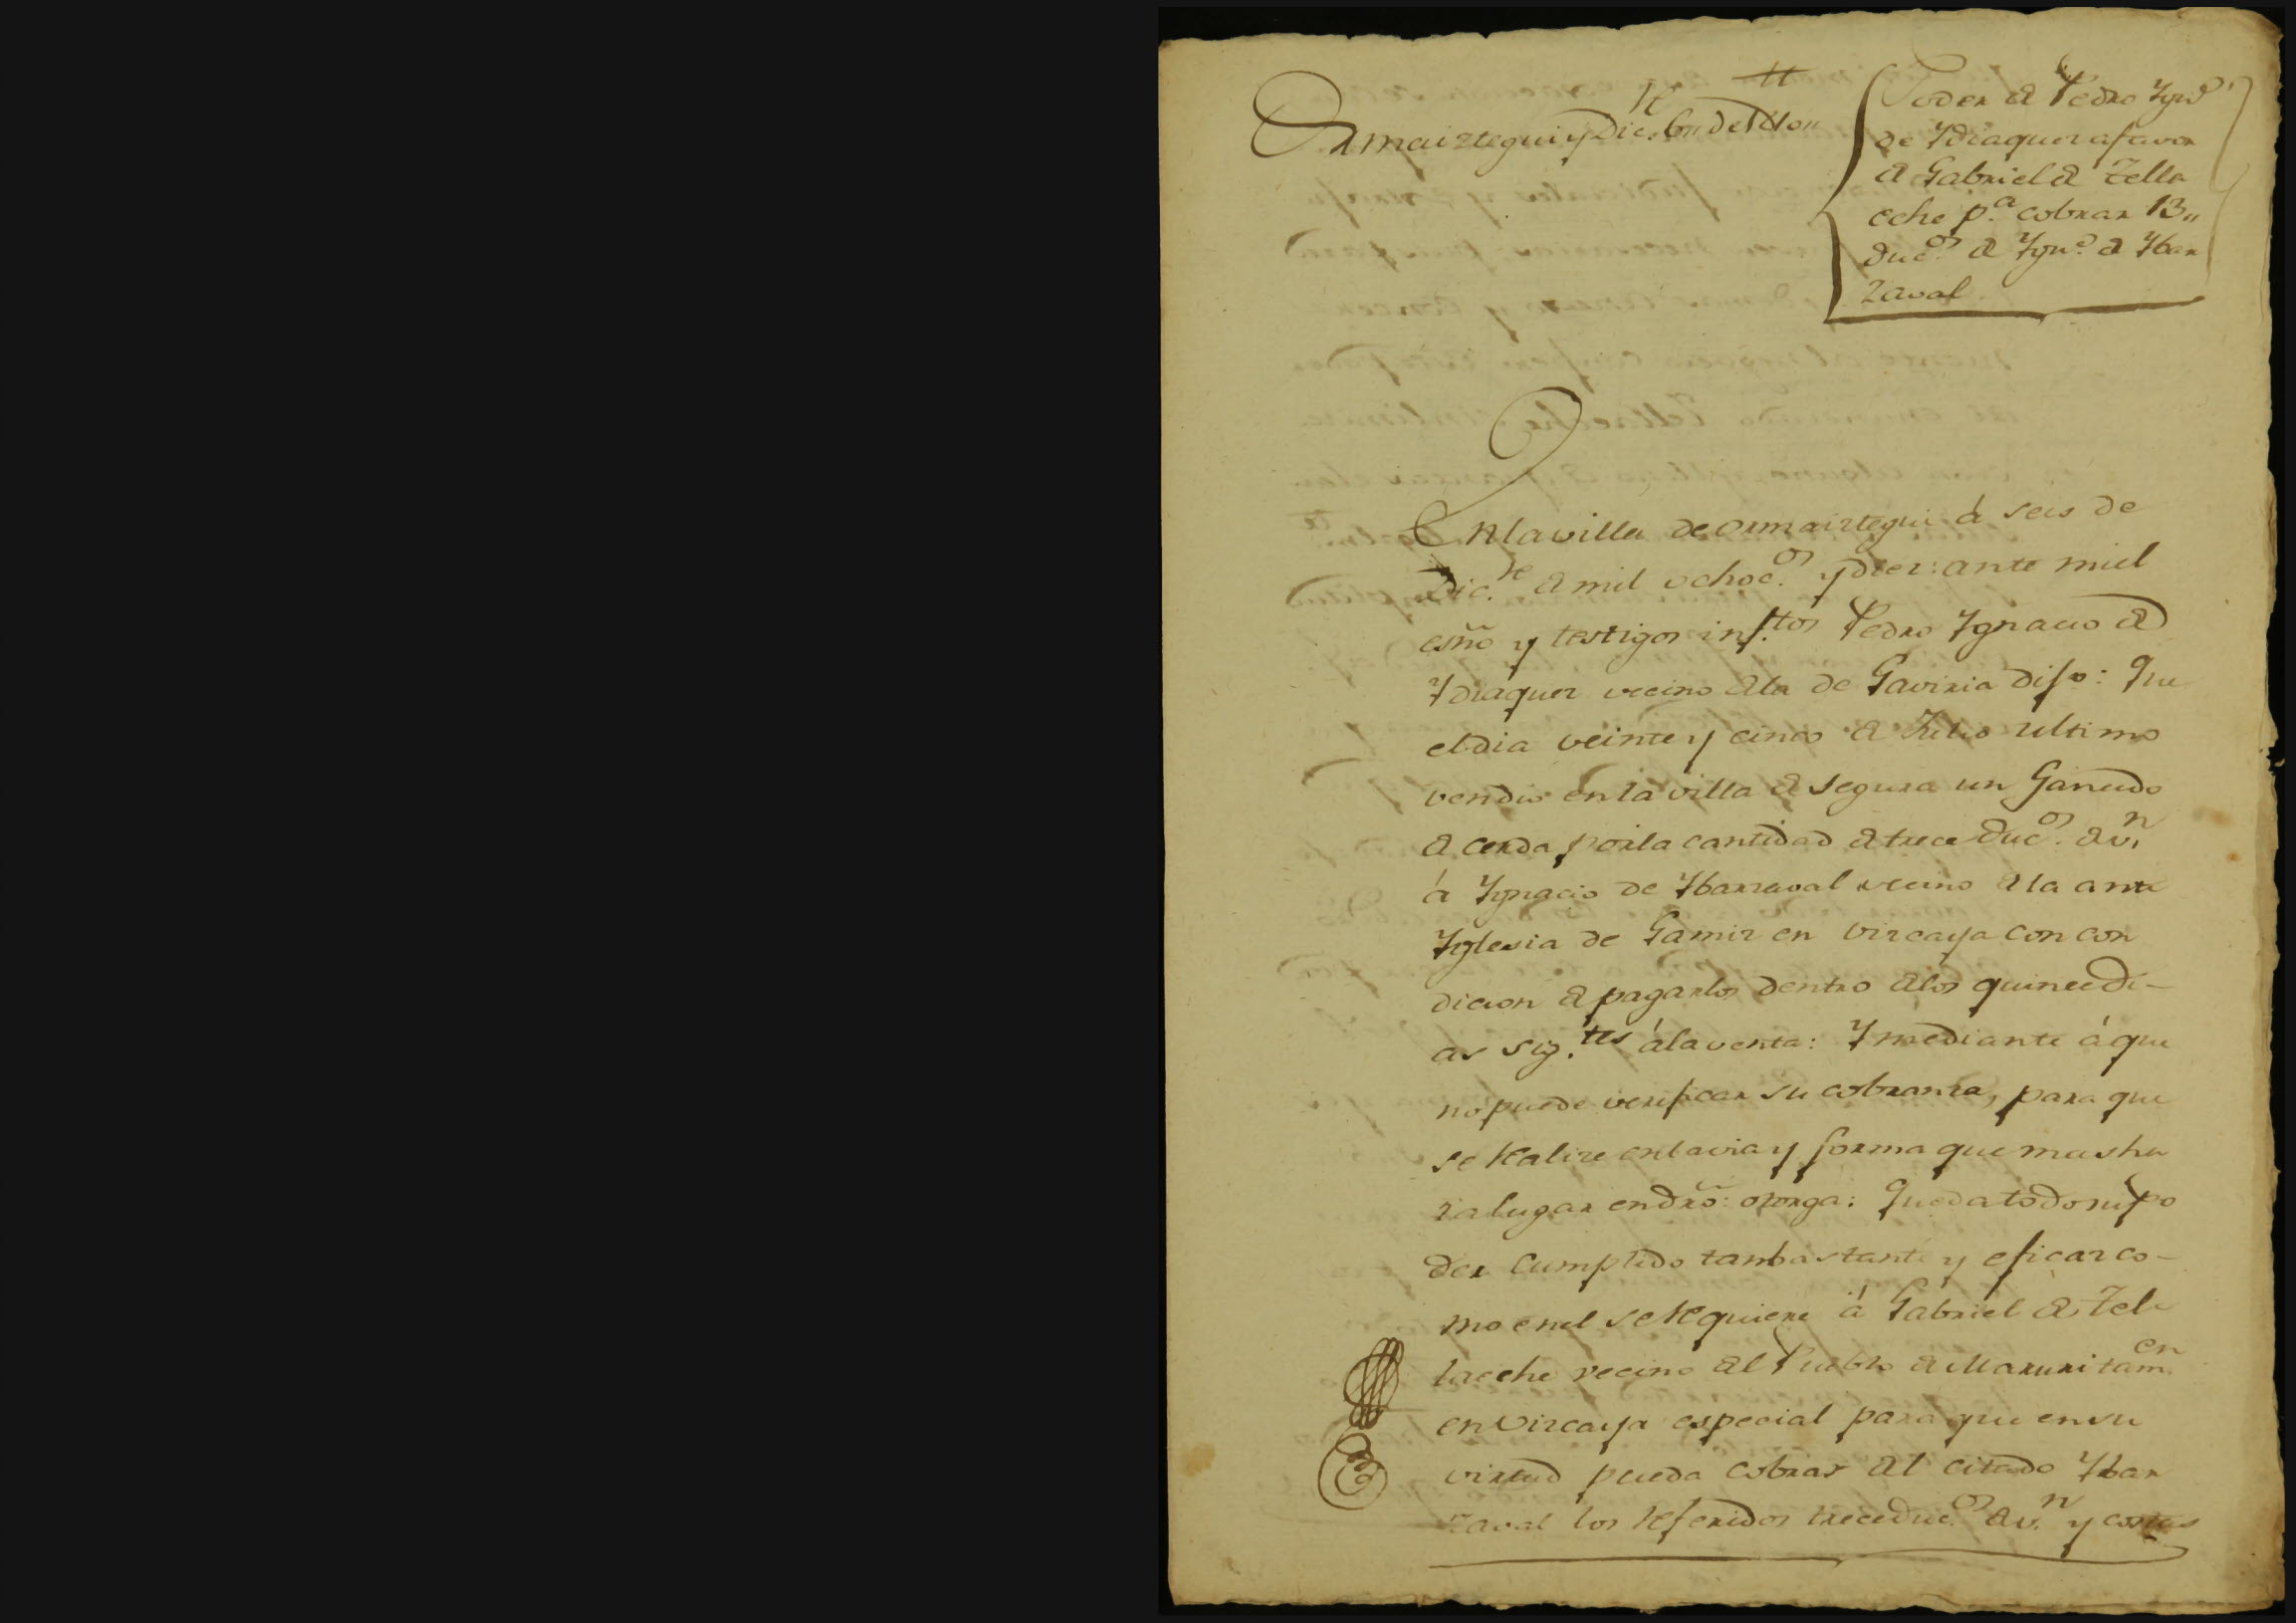 Ormaiztegui y Dic.re 6,, de 1810,,
Poder de Pedro Ygn.o
de Ydiaquez a favor
de Gabriel de Tella
eche p.a cobrar 13,,
duc.os de Ygn.o de Ybar
zaval
En la villa de Ormaiztegui á seis de
Dic.re de mil ochoc.os y diez: ante mi el
esño y testigos inf.tos Pedro Ygnacio de
Ydiaquez vecino de la de Gaviria dijo: Que
el dia veinte y cinco de Julio ultimo
vendio en la villa de Segura un Ganado
de cerda por la cantidad de trece duc.os de v.n
á Ygnacio de Ybarzaval vecino de la ante
Yglesia de Gamiz en Vizcaya con con
dicion de pagarlos dentro de los quince di-
as sig.tes á la venta: Y mediante á que
no puede verificar su cobranza, para que
se realize en la via y forma que mas ha
ia lugar en dr̃o: otorga: Que da todo su po
der cumplido tan bastante y eficaz co-
mo en el se requiere á Gabriel de Tel-
laeche vecino del Pueblo de Maruri tam.en
en Vizcaya especial para que en su
virtud pueda cobrar del citado Ybar
zaval los referidos trece duc.os de v.n y costas